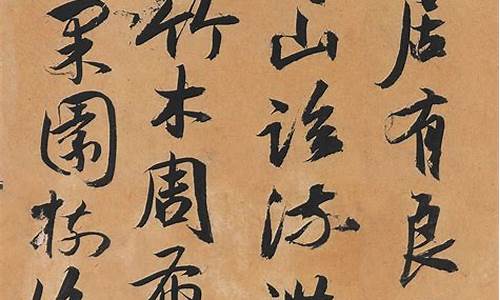 居有良
山臨流溝
竹木周布
果園樹